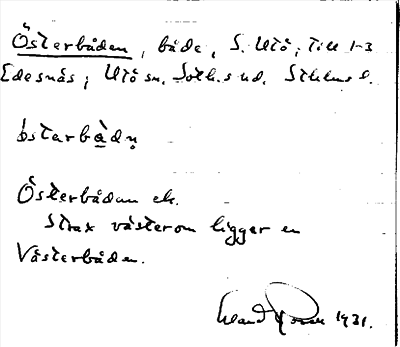 Österbåden, både, S. Utö; till 1-3
Edesnäs; Utö sn, Soth.s hd, Sthlms l.
östarbådn
Österbådan ek.
Strax väster om ligger en
Västerbåden.
1931.